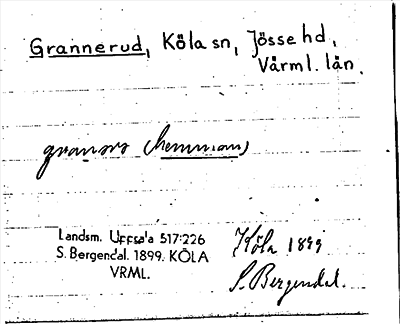 Grannerud, Köla sn, Jösse hd,
Värml. län.
Landsm. Uppsala 517:226
S. Bergendal. 1899. KÖLA
VRML.
Köla 1899
S. Bergendal.